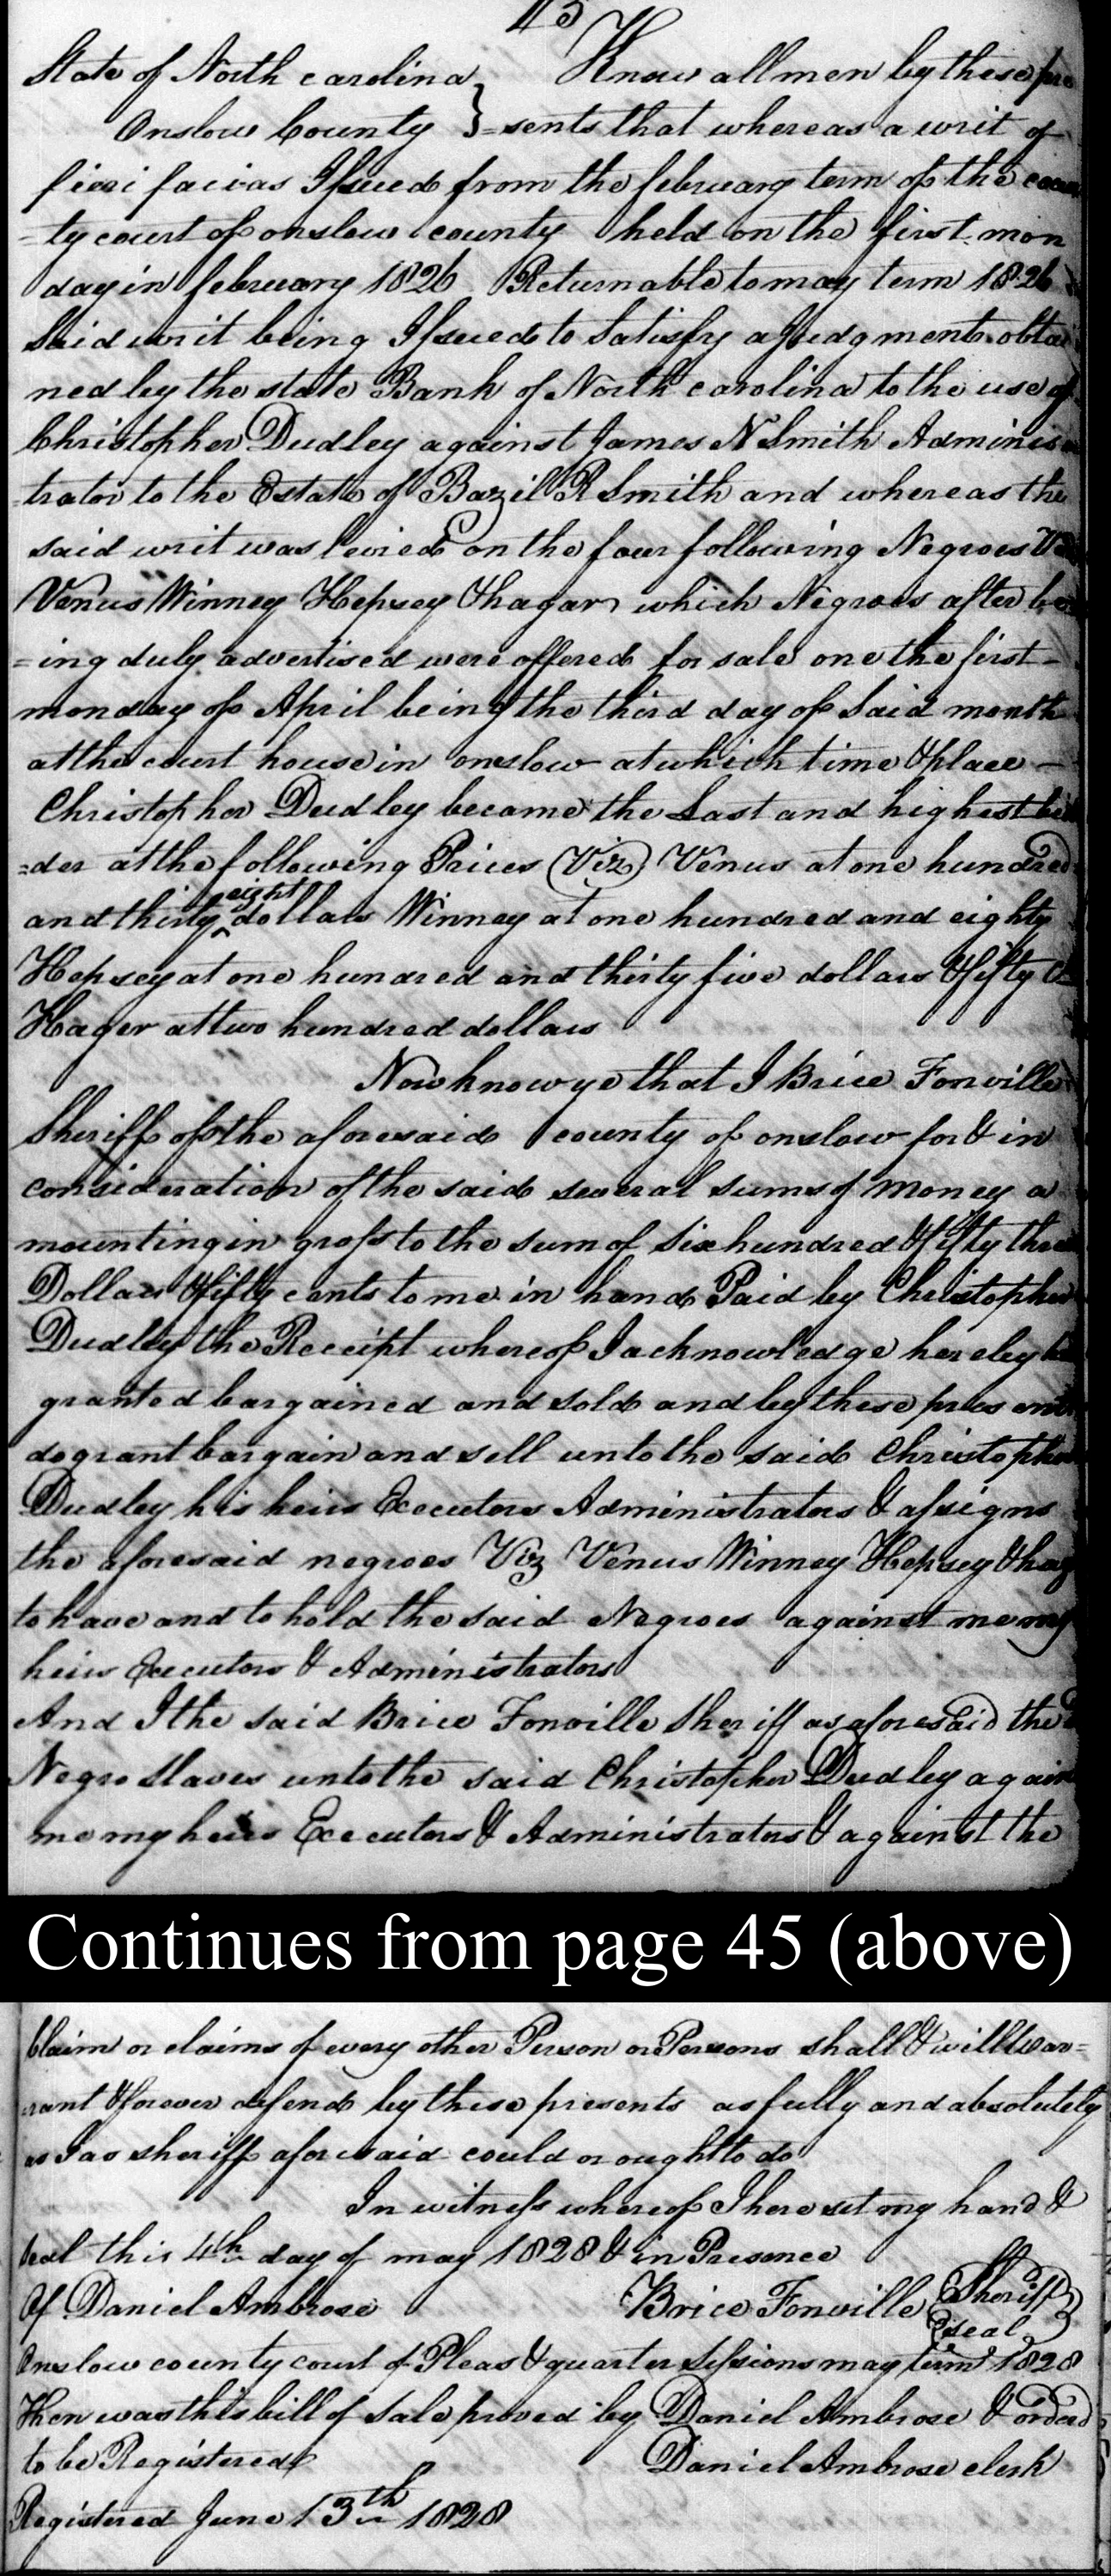 45
State of North carolina } Know all men by these pre
Onslow County } =sents that whereas a writ of
fieri facias Issued from the february term of the coun
=ty court of onslow county held on the first mon
day in february 1826 Returnable to may term 1826
Said writ being Issued to Satisfy a Judgment obtai
ned by the state Bank of North carolina to the use of
Christopher Dudley against James N Smith Adminis
=trator to the Estate of Bazil R Smith and whereas the
said writ was levied on the four following Negroes Viz
Venus Winney Hepsey & hagar which Negroes after be
=ing duly advertised were offered for sale one the first -
monday of April being the third day of Said month
at the court house in onslow at which time & place -
Christopher Dudley became the Last and highest bid
=der at the following Prices (Viz) Venus at one hundred
and thirty ^eight dollars Winney at one hundred and eighty
Hepsey at one hundred and thirty five dollars & fifty C
Hager at two hundred dollars
Now know ye that I Brice Fonville
Sheriff of the aforesaid county of onslow for & in
consideration of the said several sums of money a
mounting in gross to the sum of Six hundred & fifty three
Dollars & fifty cents to me in hand Paid by Christopher
Dudley the Receipt whereof I acknowledge hereby ha
granted bargained and sold and by these presents
do grant bargain and sell unto the said Christopher
Dudley his heirs Executors Administrators & assigns
the aforesaid negroes Viz Venus Winney Hepsey & hag
to have and to hold the said Negroes against me my
heirs Executors & Administrators
And I the said Brice Fonville Sheriff as aforesaid the
Negro Slaves unto the said Christopher Dudley again
me my heirs Executors & Administrators & against the
Continues from page 45 (above)
Claim or claims of every other Person or Persons shall & will War=
rant & forever defend by these presents as fully and absolutely
as I as sheriff aforesaid could or ought to do
In witness whereof I here set my hand &
seal this 4th day of may 1828 & in Presence
Of Daniel Ambrose Brice Fonville Sheriff
seal
Onslow county court of Pleas & quarter Sessions may term 1828
Then was this bill of Sale proved by Daniel Ambrose & ordered
to be Registered Daniel Ambrose clerk
Registered June 13th 1828